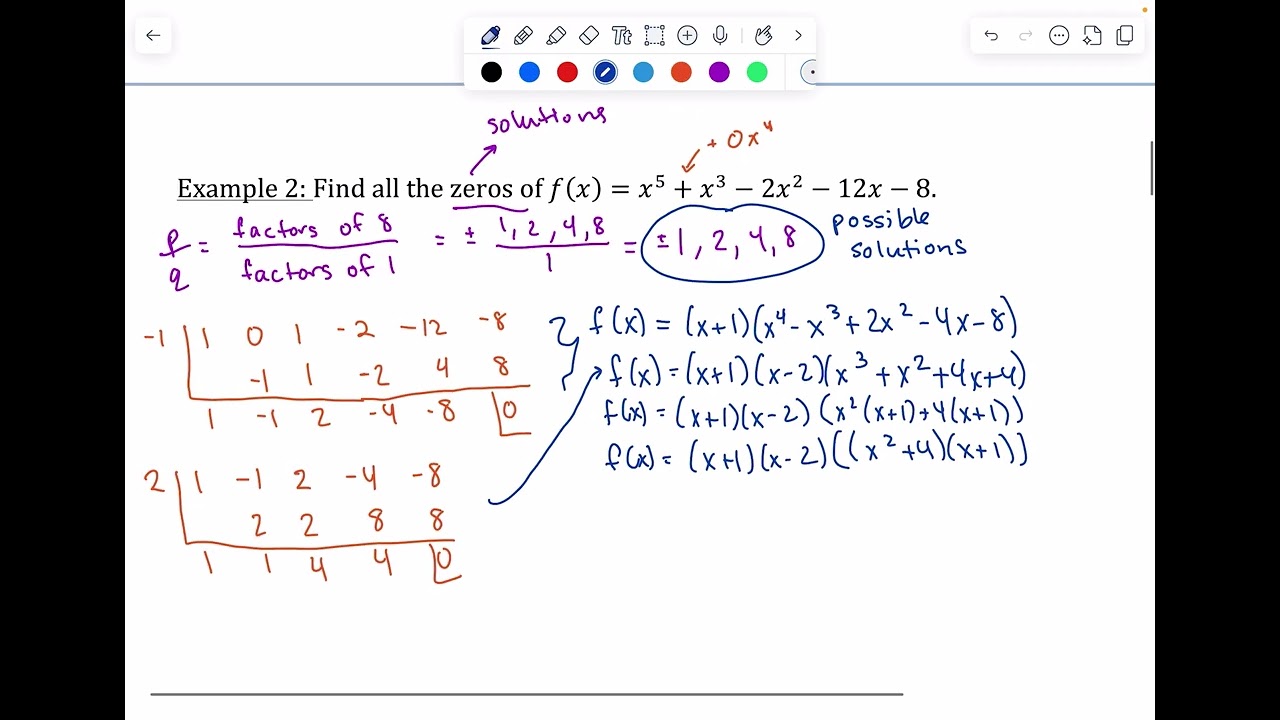 Tt
solutions
+ 0x⁴
Example 2: Find all the zeros of f(x) = x⁵ + x³ − 2x² − 12x − 8.
p/q = factors of 8 / factors of 1 = ± 1, 2, 4, 8 / 1 = ±1, 2, 4, 8 possible solutions
-1 | 1 0 1 -2 -12 -8
-1 1 -2 4 8
1 -1 2 -4 -8 |0
f(x) = (x+1)(x⁴ - x³ + 2x² - 4x - 8)
f(x) = (x+1)(x-2)(x³ + x² + 4x + 4)
f(x) = (x+1)(x-2)(x²(x+1)+4(x+1))
f(x) = (x+1)(x-2)((x²+4)(x+1))
2 | 1 -1 2 -4 -8
2 2 8 8
1 1 4 4 |0